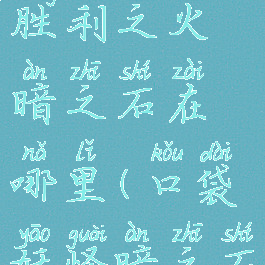 胜利之火
àn zhī shí zài
暗之石在
nǎ lǐ kǒu dài
哪里(口袋
yāo guài àn zhī shí
妖怪暗之石